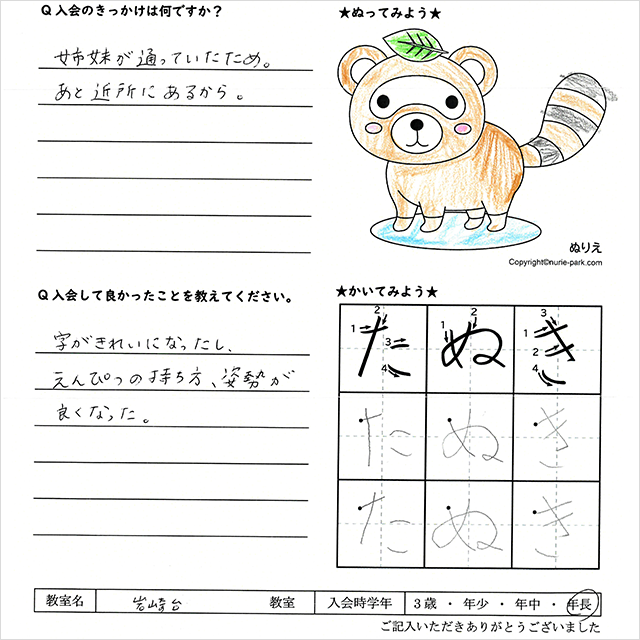 Q入会のきっかけは何ですか？
姉妹が通っていたため。
あと近所にあるから。
Q入会して良かったことを教えてください。
字がきれいになったし、
えんぴつの持ち方、姿勢が
良くなった。
★ぬってみよう★
ぬりえ
Copyright©nurie-park.com
★かいてみよう★
1 2 3 4 1 2 1 2 3 4
たぬき
たぬき
たぬき
教室名 岩崎台 教室 入会時学年 3歳・年少・年中・年長
ご記入いただきありがとうございました